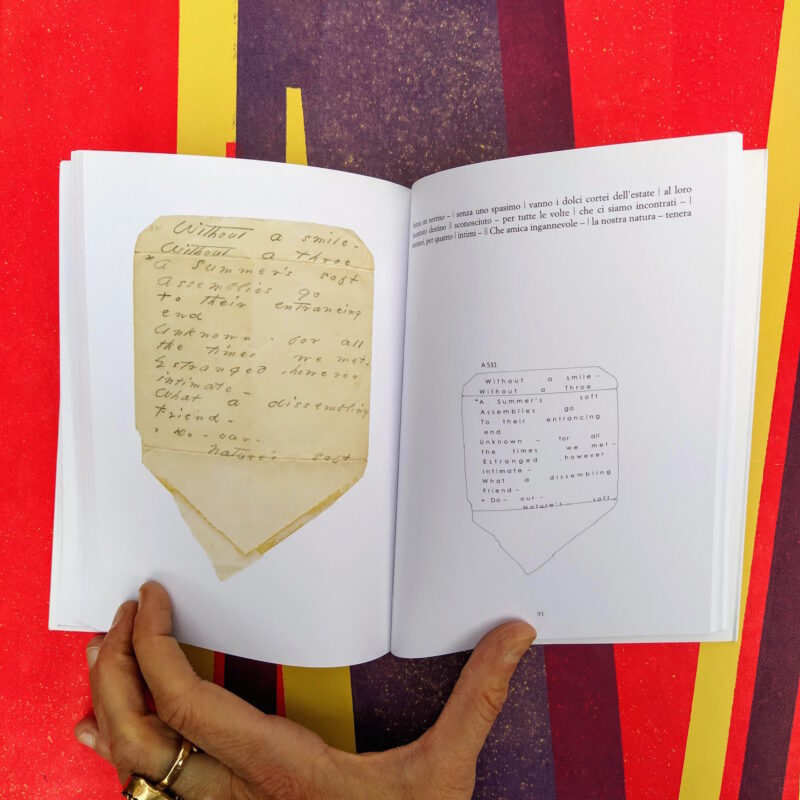 531
Without a smile -
Without a Throe
*A Summer's soft
Assemblies go
To their entrancing
end
Unknown - for all
the times we met -
Estranged, however
intimate -
What a dissembling
Friend -
+ Do - our -
Nature's soft
Senza un sorriso – | senza uno spasimo | vanno i dolci cortei dell'estate | al loro
destino | sconosciuto – per tutte le volte | che ci siamo incontrati – |
per quanto | intimi – || Che amica ingannevole – | la nostra natura – tenera
A 531
Without a smile –
Without a Throe
*A Summer's soft
Assemblies go
To their entrancing
end
Unknown – for all
the times we met –
Estranged , however
intimate –
What a dissembling
Friend –
+ Do – our –
Nature's . soft
91